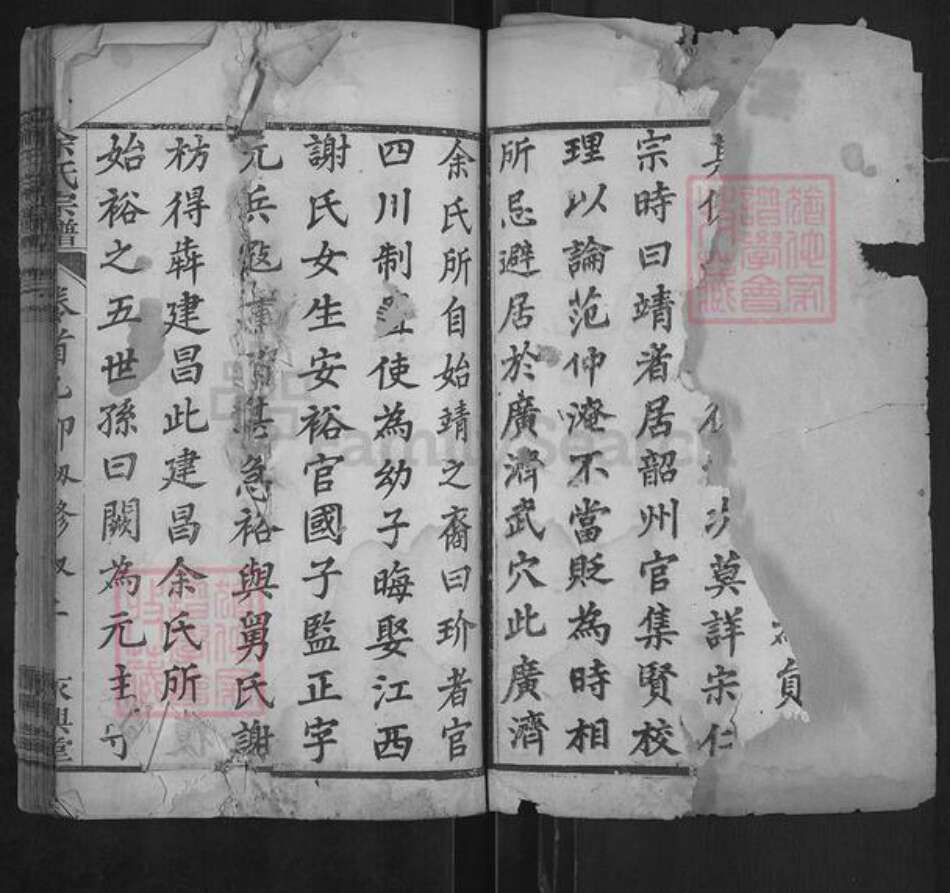 為貞
次莫詳宗仁
宗時曰靖者居韶州官集賢校
理以論范仲淹不當貶為時相
所忌避居於廣濟武穴此廣濟
余氏所自始靖之裔曰玠者官
四川制使為幼子晦娶江西
謝氏女生安裕官國子監正字
元兵寇急裕與舅氏謝
枋得犇建昌此建昌余氏所
始裕之五世孫曰闕為元主
余氏宗譜
卷首
FamilySearch